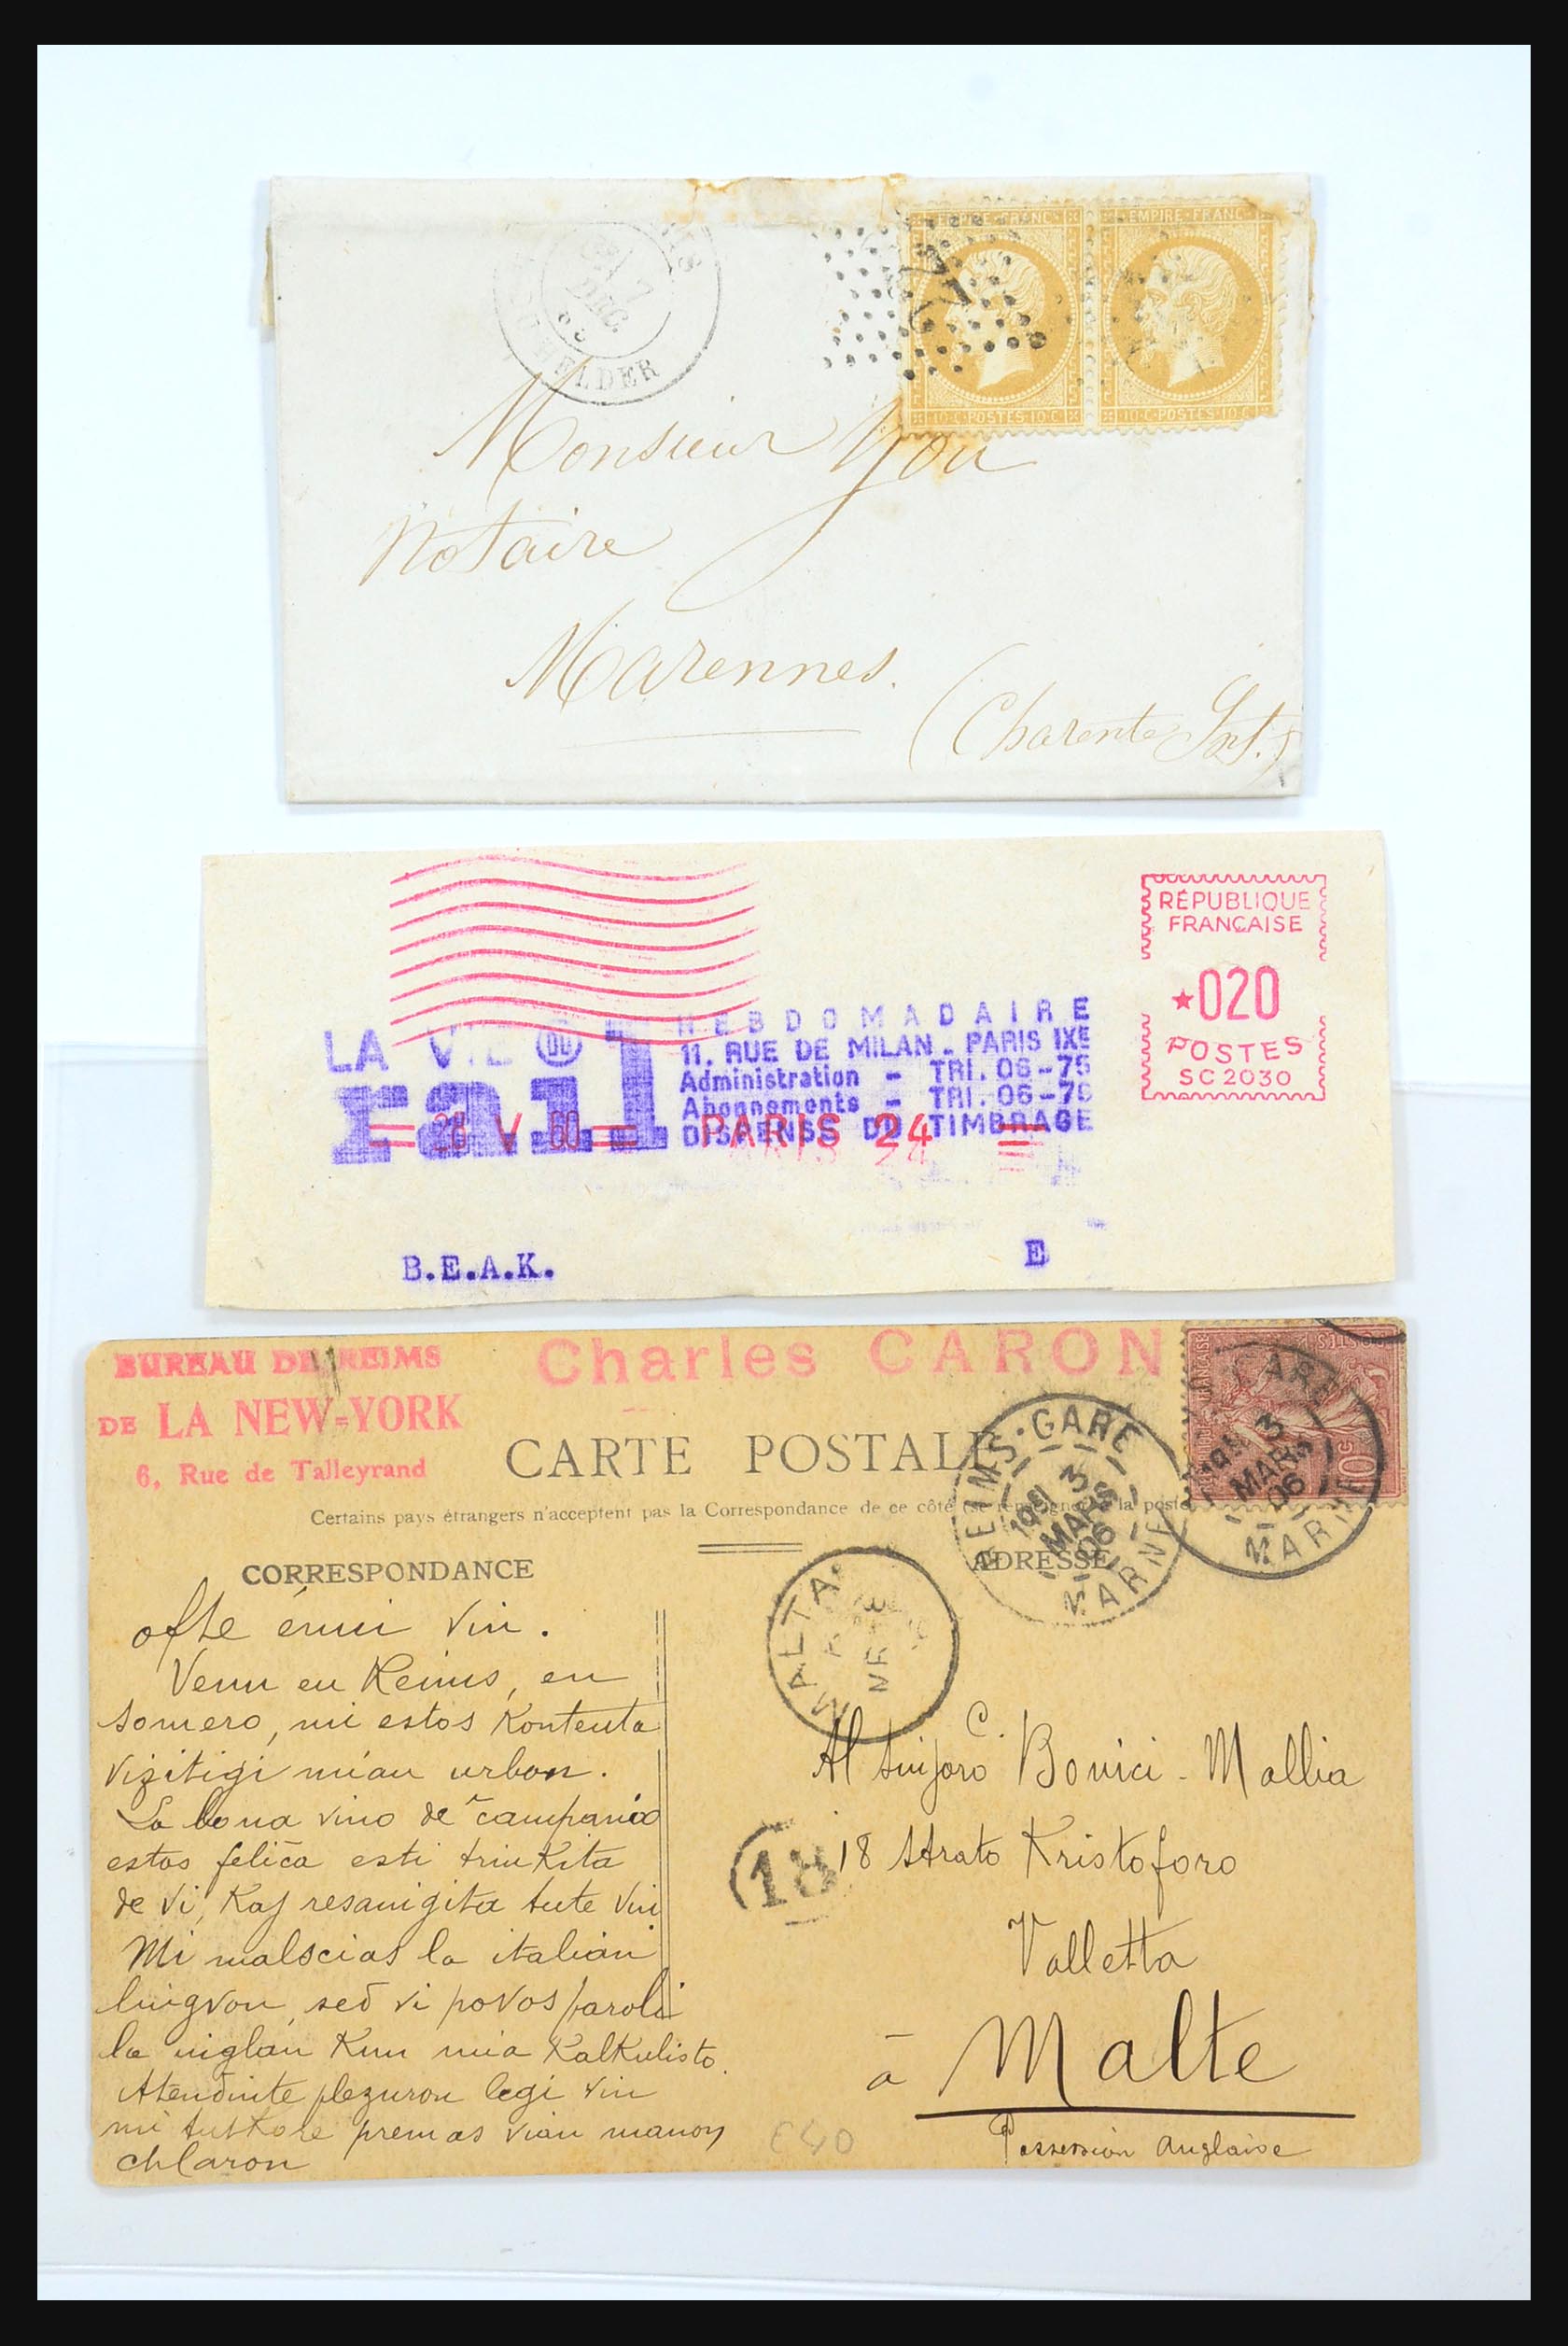 EMPIRE FRANC
EMPIRE FRANC
7
DEC.
HELDER
10 C POSTES 10 C
10 C POSTES 10 C
Monsieur You
Notaire
Marennes.
(Charente Inf.)
RÉPUBLIQUE
FRANCAISE
★020
POSTES
SC 2030
LA VIE DU
rail
HEBDOMADAIRE
11. RUE DE MILAN - PARIS IXE
Administration - TRI. 06-75
Abonnements - TRI. 06-76
DISPENSE DU TIMBRAGE
28 V 60 PARIS 24
B.E.A.K.
E
BUREAU DE REIMS
DE LA NEW-YORK
6, Rue de Talleyrand
Charles CARON
CARTE POSTALE
Certains pays étrangers n'acceptent pas la Correspondance de ce côté (se renseigner à la poste
REIMS-GARE
3
MARS
06
MARNE
GARE
3
MARS
06
MARNE
10c
CORRESPONDANCE
ADRESSE
MALTA
ofte enui vin.
Venu en Reims, en
somero, mi estos kontenta
vizitigi mian urbon.
La bona vino de ĉampanio
estas feliĉa esti trinkita
de vi, Kaj resanigita tute vin
Mi malscias la italian
lingvon, sed vi povos paroli
la inglan Kun mia Kalkulisto.
Atendinte plezuron legi vin
mi tutkore premas vian manon
ch Caron
C.
Al sinjoro Bonici-Mallia
18 strato Kristoforo
Valletta
à Malte
Possession Anglaise
18
€40